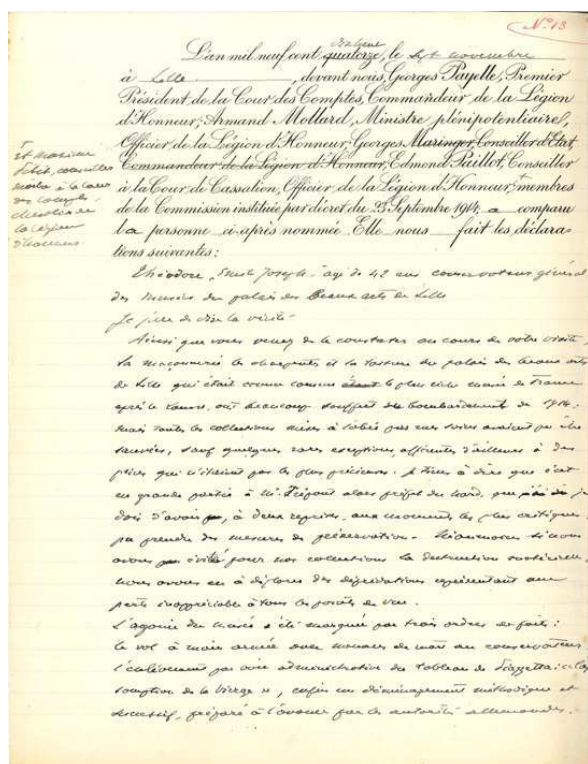 N° 13
dix huit
L'an mil neuf cent quatorze, le sept novembre
à Lille, devant nous, Georges Payelle, Premier
Président de la Cour des Comptes, Commandeur de la Légion
d'Honneur; Armand Mollard, Ministre plénipotentiaire,
Officier de la Légion d'Honneur; Georges Maringer, Conseiller d'Etat,
Commandeur de la Légion d'Honneur, Edmond Paillot, Conseiller
à la Cour de Cassation, Officier de la Légion d'Honneur, membres
de la Commission instituée par décret du 23 Septembre 1914, a comparu
la personne ci-après nommée. Elle nous fait les déclara-
tions suivantes:
et Maxime
conseiller
maître à la Cour
des Comptes,
chevalier de
la Légion
d'honneur
Théodore, Emile Joseph, âgé de 42 ans conservateur général
des musées du palais des Beaux arts de Lille
Je jure de dire la vérité.
Ainsi que vous venez de le constater au cours de votre visite,
la maçonnerie les charpentes et la toiture du palais des beaux arts
de Lille qui était connu comme le plus riche musée de France
après le Louvre, ont beaucoup souffert du bombardement de 1914.
Mais toutes les collections mises à l'abri par mes soins avaient pu être
sauvées, sauf quelques rares exceptions afférentes d'ailleurs à des
pièces qui n'étaient pas les plus précieuses. Je tiens à dire que c'est
en grande partie à M. Trépont alors préfet du Nord, que je
dois d'avoir, à deux reprises, aux moments les plus critiques,
pu prendre des mesures de préservation. Néanmoins si nous
avons évité pour nos collections la destruction matérielle,
nous avons eu à déplorer des déprédations représentant une
perte inappréciable à tous les points de vue.
L'agonie du musée a été marquée par trois ordres de faits:
le vol à main armée avec menaces de mort au conservateur,
l'enlèvement par voie administrative du tableau de Piazzetta: « l'As
somption de la Vierge », enfin un déménagement méthodique et
successif, préparé à l'avance par les autorités allemandes.